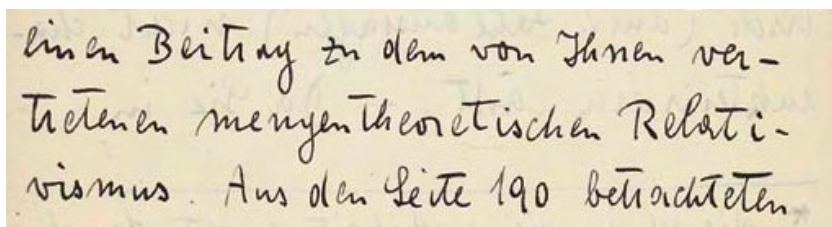 einen Beitrag zu dem von Ihnen ver-
tretenen mengentheoretischen Relati-
vismus. Aus den Seite 190 betrachteten